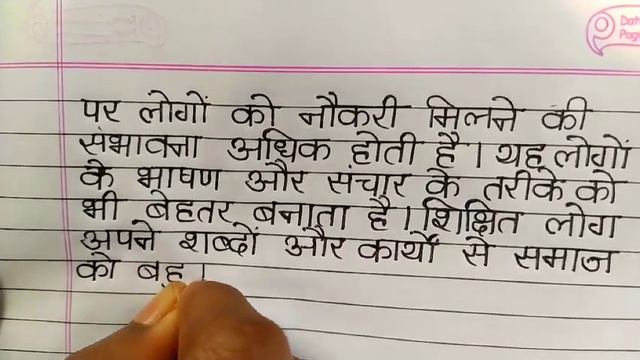 Dat
Pag
पर लोगों को नौकरी मिलने की
संभावना अधिक होती है। यह लोगों
के भाषण और संचार के तरीके को
भी बेहतर बनाता है। शिक्षित लोग
अपने शब्दों और कार्यों से समाज
को बह।